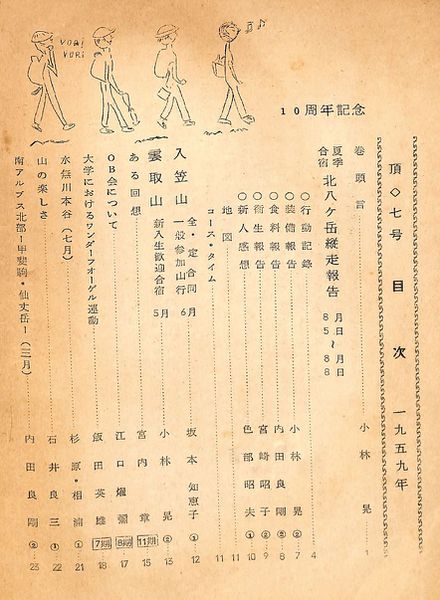 VORI
VORI
10周年記念
頂〇七号 目次 一九五九年
巻頭言 小林 晃 1
夏季合宿 北八ケ岳縦走報告 8月5日〜8月8日
〇行動記録 4
〇装備報告 小林 晃② 7
〇食料報告 内田良剛② 8
〇衛生報告 宮崎昭子② 9
〇新人感想 色部昭夫① 10
地図 11
コース・タイム 11
入笠山 全・定合同一般参加山行 6月 坂本知恵子① 12
雲取山 新入生歓迎合宿 5月 小林 晃② 13
ある回想 宮内 章 11期 15
OB会について 江口 彌 8期 17
大学におけるワンダーフオーゲル運動 飯田英雄 7期 18
水無川本谷(七月) 杉原・相浦① 21
山の楽しさ 石井良三① 22
南アルプス北部ー甲斐駒・仙丈岳ー(三月) 内田良剛② 23